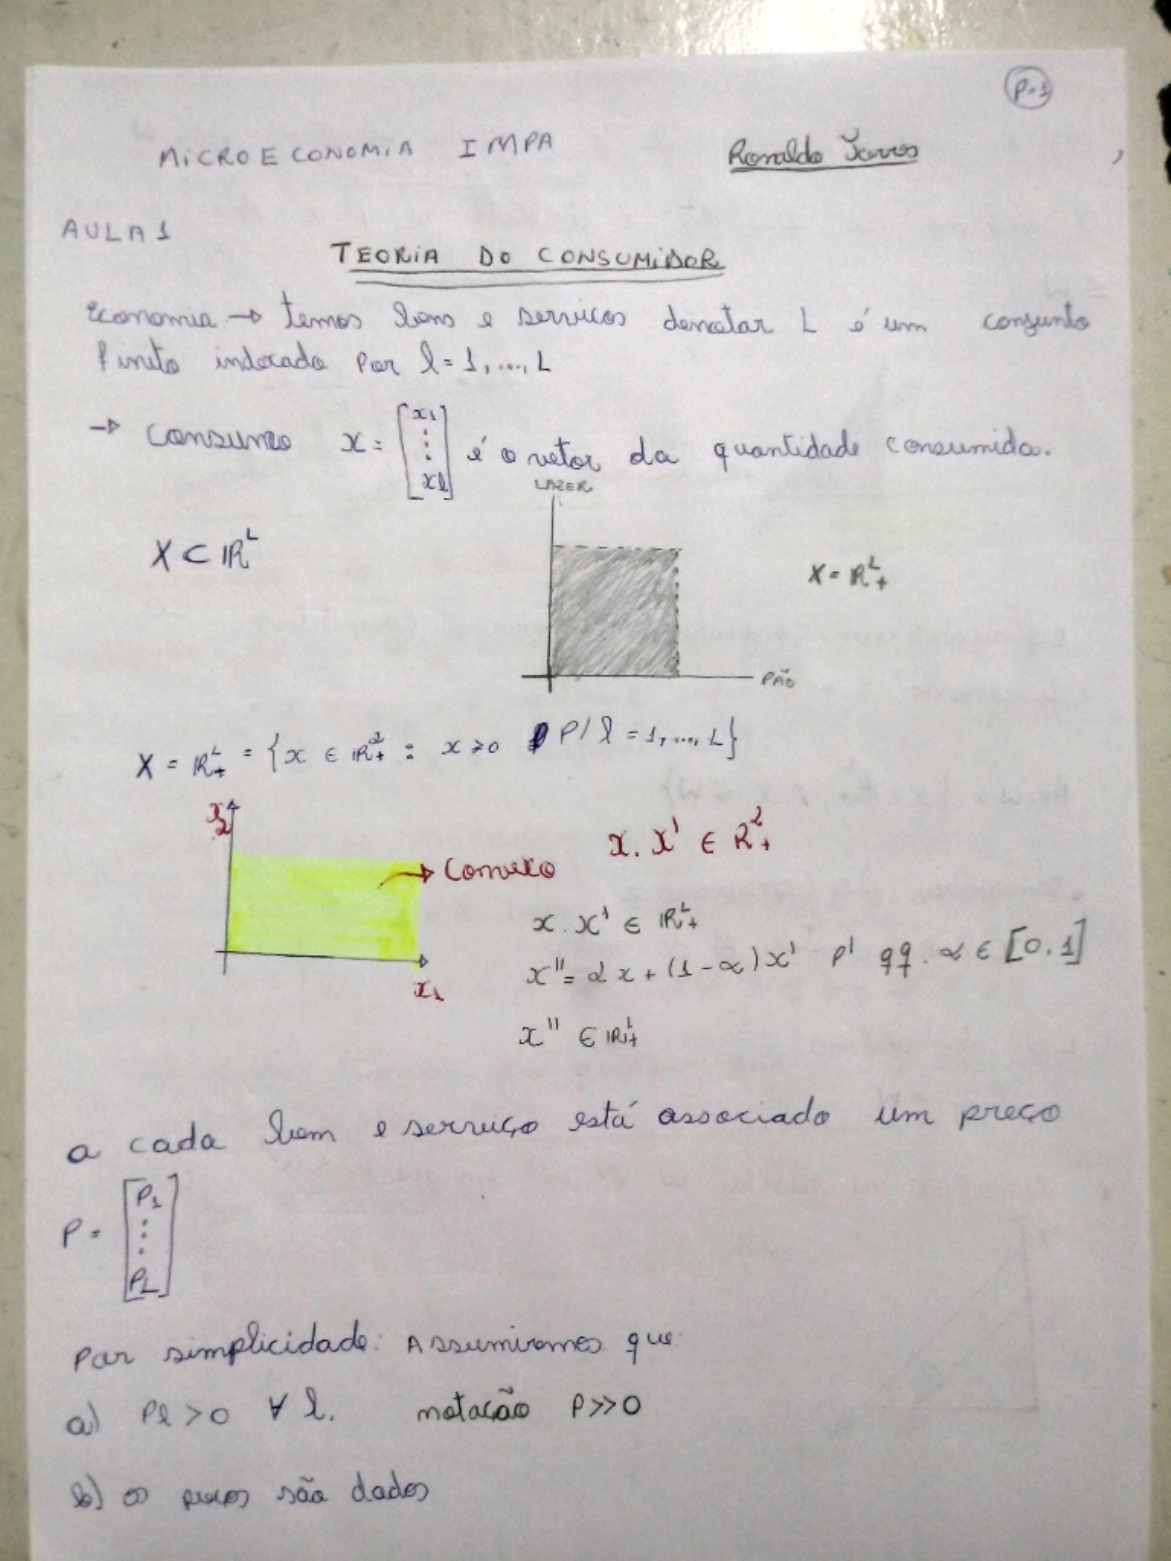 P.1
MICROECONOMIA IMPA
Ronaldo
AULA 1
TEORIA DO CONSUMIDOR
Economia → temos bens e servicos denotar L é um conjunto
finito indexado por l = 1, ..., L
→ Consumo x = [x1 ⋮ xl] é o vetor da quantidade consumida.
LAZER
X ⊂ ℝ^L
X = ℝ^L_+
PÃO
X = ℝ^L_+ = {x ∈ ℝ^2_+ : x ≥ 0 P/ l = 1, ..., L}
x2
→ Convexo
x . x' ∈ R^2_+
x . x' ∈ ℝ^L_+
x'' = α x + (1 - α) x' p' qq . α ∈ [0 . 1]
x1
x'' ∈ ℝ^L_+
a cada bem e serviço está associado um preço
P = [P1 ⋮ PL]
Por simplicidade: Assumiremos que:
a) Pl > 0 ∀ l. notacão P >> 0
b) os preços são dados